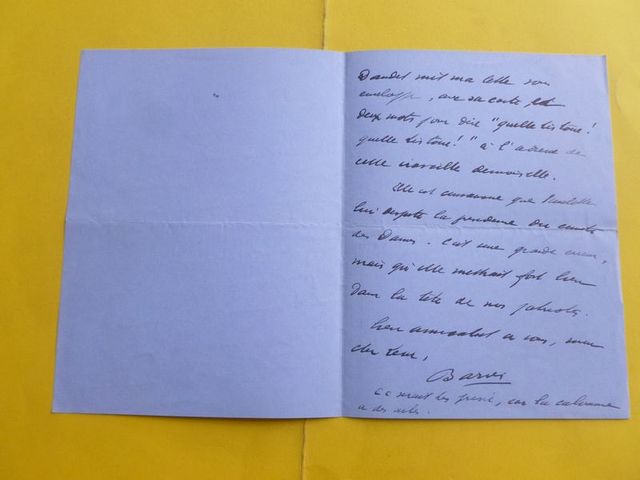 Daudet mit ma lettre sous
enveloppe, avec sa carte et
deux mots pour dire "quelle histoire!
quelle histoire!" à l'adresse de
cette vieille demoiselle.
Elle est convaincue que
lui dispute la présidence du comité
des Dames. C'est une grande erreur,
mais qu'elle mettrait fort bien
dans la tête de nos
bien amicalement à vous, mon
cher
Barrès
ce serait très grave, car la calomnie
a des ailes.